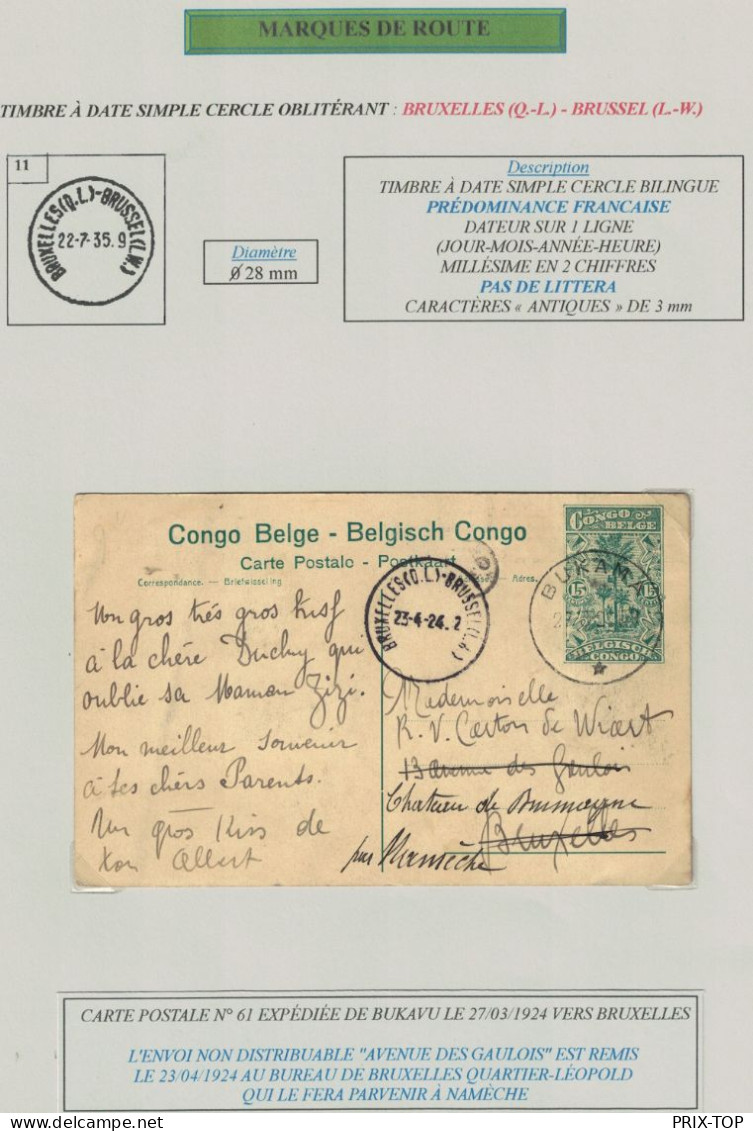 MARQUES DE ROUTE
TIMBRE À DATE SIMPLE CERCLE OBLITÉRANT : BRUXELLES (Q.-L.) - BRUSSEL (L.-W.)
11
BRUXELLES(Q.L.)-BRUSSEL(L.W.)
22-7-35.9
Diamètre
Ø 28 mm
Description
TIMBRE À DATE SIMPLE CERCLE BILINGUE
PRÉDOMINANCE FRANCAISE
DATEUR SUR 1 LIGNE
(JOUR-MOIS-ANNÉE-HEURE)
MILLÉSIME EN 2 CHIFFRES
PAS DE LITTERA
CARACTÈRES « ANTIQUES » DE 3 mm
Congo Belge - Belgisch Congo
Carte Postale - Postkaart
Correspondance. — Briefwisseling
Adres.
CONGO BELGE
15
BELGISCH CONGO
BUKAMA
BRUXELLES(Q.L.)-BRUSSEL(L.W.)
23-4-24. 2
Un gros très gros
à la chère Duchy qui
oublie sa Maman Zizi.
Mon meilleur souvenir
à tes chers Parents.
Un gros Kiss de
ton Albert
Mademoiselle
R. V. Carton de Wiart
13 avenue des Gaulois
Chateau de
Bruxelles
par Namèche
CARTE POSTALE N° 61 EXPÉDIÉE DE BUKAVU LE 27/03/1924 VERS BRUXELLES
L'ENVOI NON DISTRIBUABLE "AVENUE DES GAULOIS" EST REMIS
LE 23/04/1924 AU BUREAU DE BRUXELLES QUARTIER-LÉOPOLD
QUI LE FERA PARVENIR À NAMÈCHE
PRIX-TOP